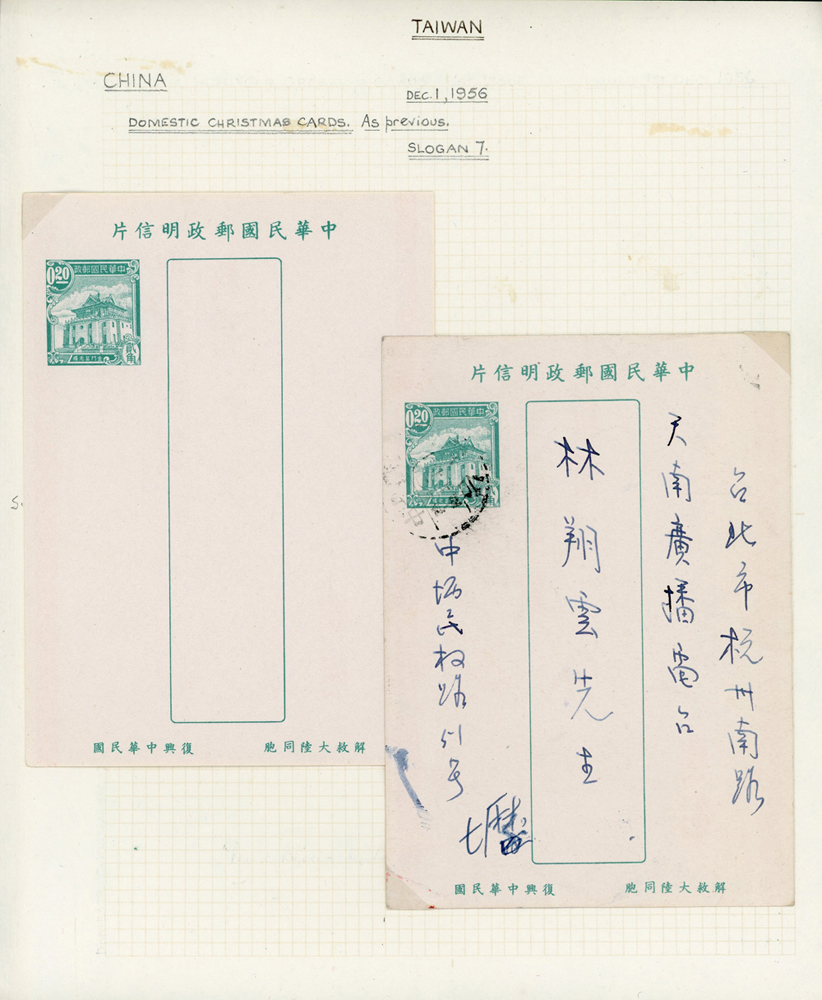 TAIWAN
CHINA
DEC. 1, 1956
DOMESTIC CHRISTMAS CARDS. As previous.
SLOGAN 7.
中華民國郵政明信片
中華民國郵政
0.20
貳角
解救大陸同胞
復興中華民國
S.
中華民國郵政明信片
中華民國郵政
0.20
台北市杭州南路
天南廣播電台
林翔雲先生
中坜民权路51号
解救大陸同胞
復興中華民國